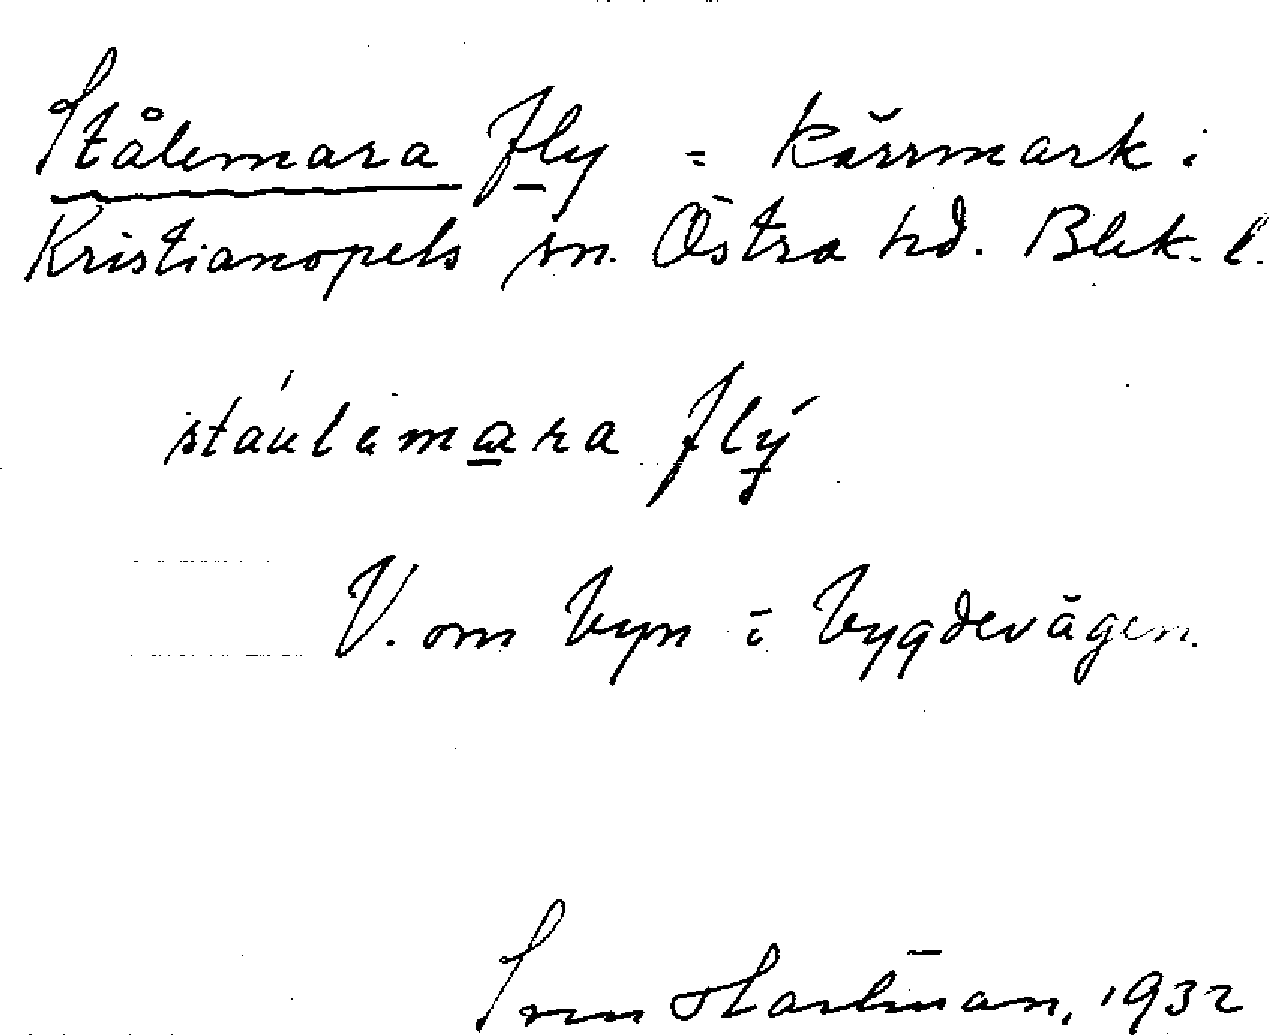 Stålemara fly = kärrmark i
Kristianopels sn. Östra hd. Blek. l.
stáulamara flý
V. om byn i bygdevägen.
Sven Hartman, 1932